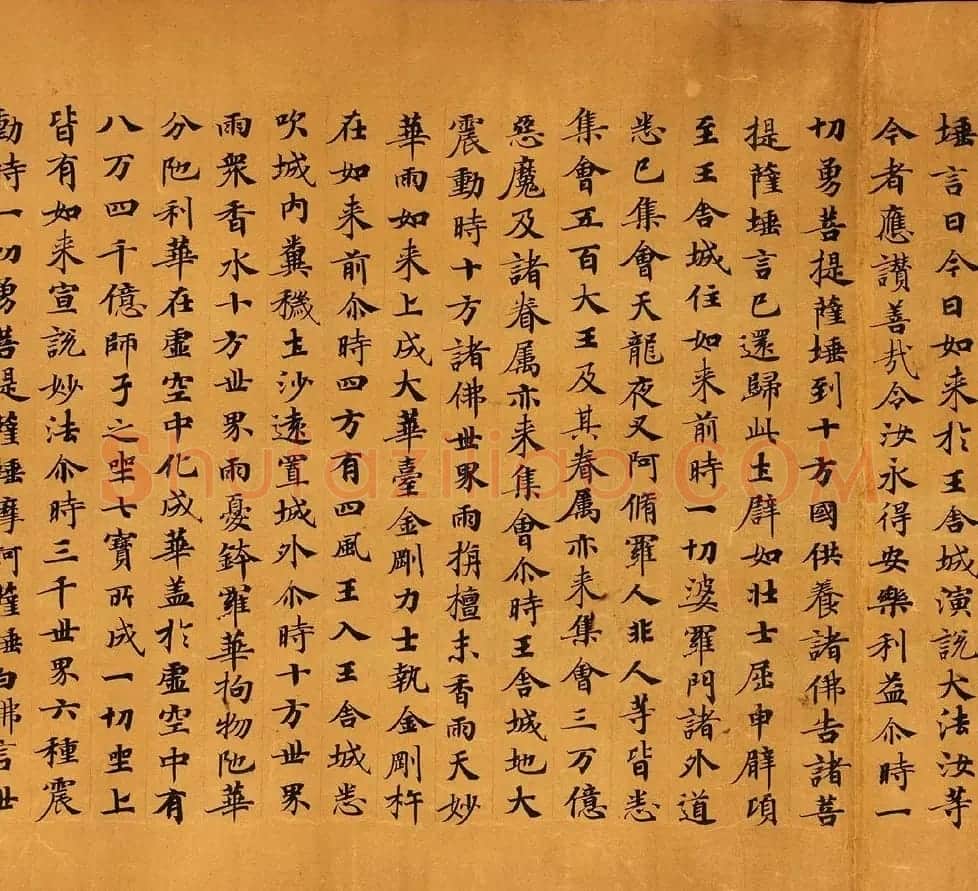 埵言日今日如来於王舍城演說大法汝等
今者應讃善㢤令汝永得安樂利益尒時一
切勇菩提薩埵到十方國供養諸佛告諸菩
提薩埵言已還歸此土辟如壯士屈申臂項
至王舍城住如来前時一切婆羅門諸外道
悉已集會天龍夜叉阿脩羅人非人等皆悉
集會五百大王及其眷属亦来集會三万億
惡魔及諸眷属亦来集會尒時王舍城地大
震動時十方諸佛世界雨栴檀末香雨天妙
華雨如来上成大華臺金剛力士執金剛杵
在如来前尒時四方有四風王入王舍城悉
吹城内糞穢土沙遠置城外尒時十方世界
雨衆香水十方世界雨憂鉢羅華拘物陁華
分陁利華在虛空中化成華盖於虛空中有
八万四千億師子之坐七寶所成一切坐上
皆有如来宣說妙法尒時三千世界六種震
動時一切勇菩提薩埵摩訶薩埵白佛言世
Shufaziliao.COM